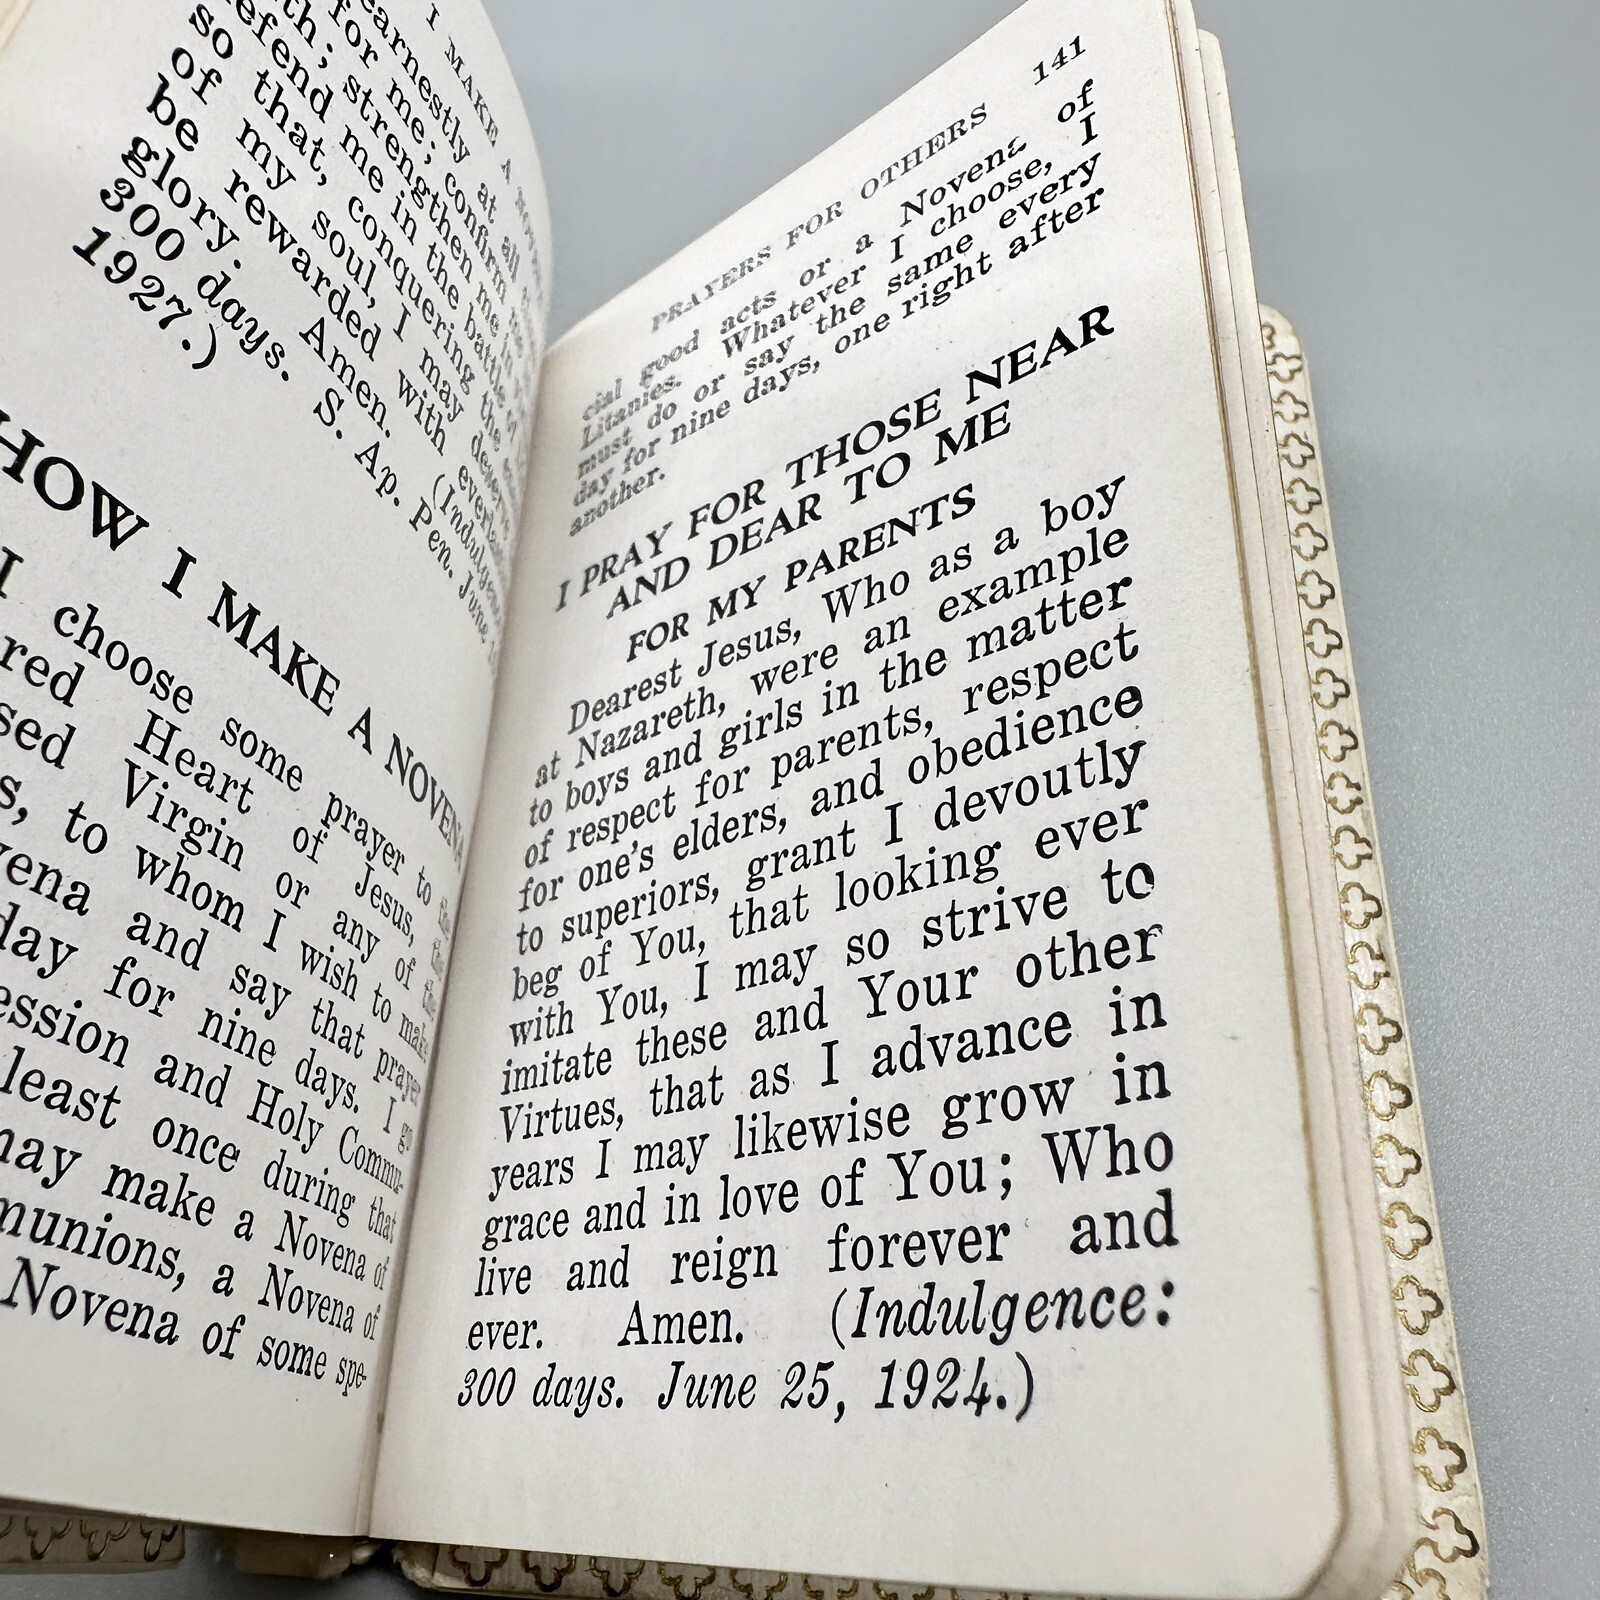 I MAKE A
earnestly at all
for me; confirm me in
th; strengthen me
efend me in the battle
so that, conquering the
of my soul, I may
be rewarded with
glory. Amen.
300 days. S. Ap. Pen. June
1927.)
HOW I MAKE A NOVENA
I choose some prayer to the
red Heart of Jesus, the
sed Virgin or any of the
s, to whom I wish to make
vena and say that prayer
day for nine days. I go
ession and Holy Commu-
least once during that
may make a Novena of
munions, a Novena of
Novena of some spe-
PRAYERS FOR OTHERS 141
cial good acts or a Novena of
Litanies. Whatever I choose, I
must do or say the same every
day for nine days, one right after
another.
I PRAY FOR THOSE NEAR
AND DEAR TO ME
FOR MY PARENTS
Dearest Jesus, Who as a boy
at Nazareth, were an example
to boys and girls in the matter
of respect for parents, respect
for one's elders, and obedience
to superiors, grant I devoutly
beg of You, that looking ever
with You, I may so strive to
imitate these and Your other
Virtues, that as I advance in
years I may likewise grow in
grace and in love of You; Who
live and reign forever and
ever. Amen. (Indulgence:
300 days. June 25, 1924.)